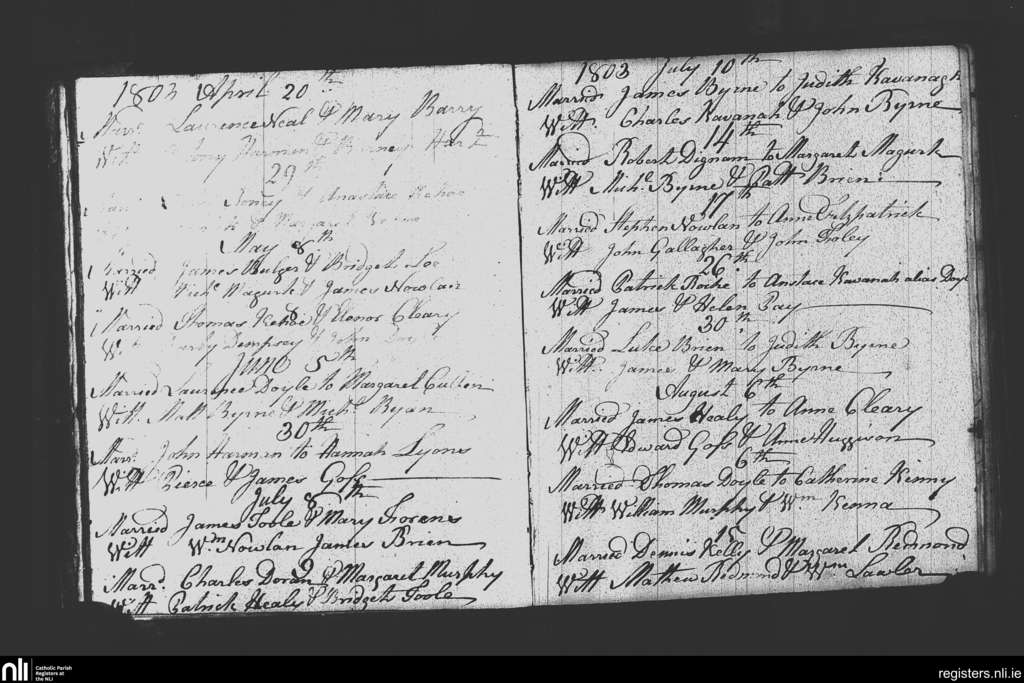 1803 April 20th
Marr. Laurence Neal & Mary Barry
Witt Harmon & Birney
29th
& Anastace Kehoe
& Margaret
May 8th
Married James Bulger & Bridget
Witt Michl Magurk & James Nowlan
8
Married Thomas Kehoe & Elenor Cleary
Dempsey & John
June 5th
Married Laurence Doyle to Margaret Cullen
Witt. Matt Byrne & Michl Ryan
30th
Marr. John Harmon to Hannah Lyons
Witt Pierce & James Goff
July 8th
Married James Toole & Mary
Witt Wm Nowlan James Brien
9
Marrd. Charles Doran & Margaret Murphy
Witt Patrick Healy & Bridget Toole
1803 July 10th
Married James Byrne to Judith Kavanagh
Witt. Charles Kavanah & John Byrne
14th
Married Robert Dignam to Margaret Magurk
Witt Michl Byrne & Patt Brien
17th
Married Stephen Nowlan to Anne Fitzpatrick
Witt John Gallagher & John Foley
26th
Married Patrick Roche to Anstace Kavanah alias Doyle
Witt James & Helen Pay
30th
Married Luke Brien to Judith Byrne
Witt. James & Mary Byrne
August 6th
Married James Healy to Anne Cleary
Witt Edward Goff & Anne
6th
Married Thomas Doyle to Catherine Kenny
Witt William Murphy & Wm Kenna
15
Married Dennis Kelly & Margaret Redmond
Witt Mathew Redmond & Wm Lawler
nli
Catholic Parish
Registers at
the NLI
registers.nli.ie